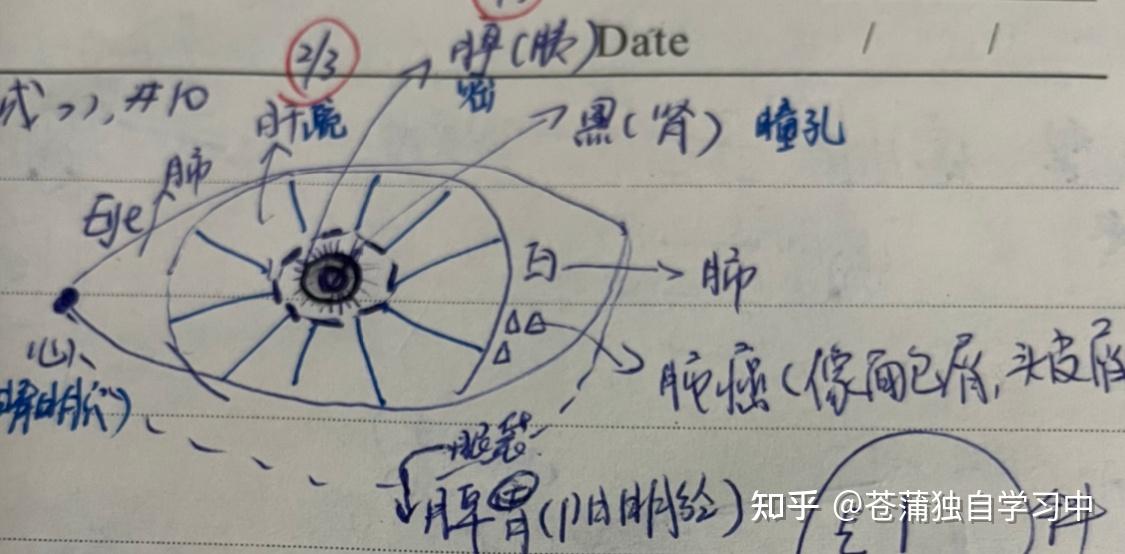 脾(胰) Date / /
2/3
#10
肝
黑(肾) 瞳孔
肺
Eye
白 肺
心
肺癌(像面包屑,头皮屑
眼袋
脾胃(阳明经)
知乎 @苍蒲独自学习中